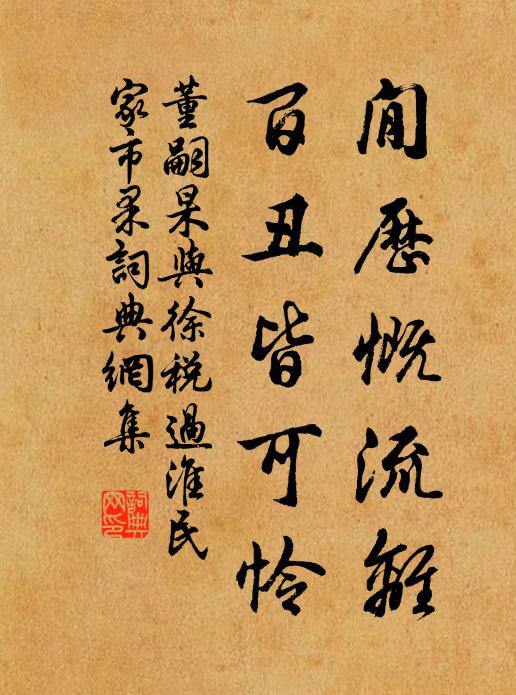 閒歷慨流離
百丑皆可怜
董嗣杲與徐税過淮民
家市果詞典網集
詞典
网印